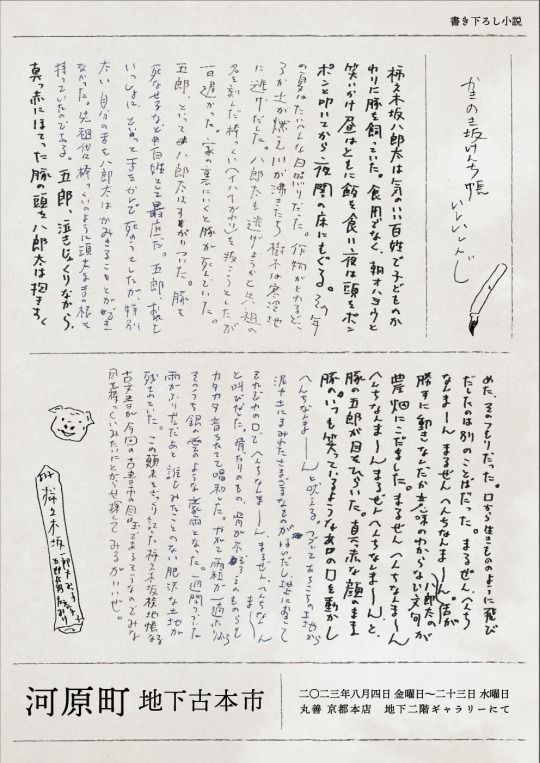 書き下ろし小説
かきのき坂けんち帳
いしいしんじ
柿之木坂八郎太は気のいい百姓で子どものか
わりに豚を飼っていた。食用でなく、朝オハヨウと
笑いかけ昼はともに飯を食い夜は頭をポン
ポンと叩いてから夜闇の床にもぐる。その年
の夏はたいへんな日でりだった。作物がとれるど、
ころか土が燃え川が沸きたち樹木は寒冷地
に逃げだした。八郎太も逃げようかと先祖の
名を刻んだ棒っくい(イハイがわり)を抜こうとしたが
一日遅かった。家の裏にいくと豚が死んでいた。
五郎、といって八郎太はすがりついた。豚を
死なせるなど百姓として最底だ。五郎、おれも
いっしょに、と言って舌をかんで死のうとしたが特別
太い自分の舌を八郎太はかみきることができ
なかった。先祖代々棒っくいのように頭丈な舌の根を
持っていたのである。五郎、泣きじゃくりながら、
真っ赤にほてった豚の頭を八郎太は抱きすく
めた、そのつもりだった。口から生きもののように飛び
だしたのは別のことばだった。まるぜん、へんち
なんまーん まるぜんへんちなんまーん。舌が
勝手に動きなんだか意味のわからない文句が八郎太の
農畑にこだました。まるぜん へんちなんまーん
へんちなんまーんまるぜんへんちなんまーん、と、
豚の五郎が目をひらいた。真っ赤な顔のまま
豚のいつも笑っているようなあの口を動かし
へんちなんまーん と吠える。つづいてあちこちの土地から
泥や土にまみれたさまざまなものがはいだし、地におきて
それぞれの口で へんちなんまーん まるぜん、へんちなんまーん
と叫びだした。骨だけのもの、骨が
カタカタ音をたてて唱和した。やがて雨粒が一滴ふり
そのうち銀の雲のような豪雨となった。一週間つづいた
雨がふり止んだあと誰もみたことのない肥沃な土地が
残されていた。この顛末をさっくり記した柿之木坂検地帳なる
古文書が今回の古書市の目玉であるそうなのでみな
目を棒っくいみたいにとがらせ探してみるがいいぜ。
柿之木坂
河原町 地下古本市
二〇二三年八月四日 金曜日〜二十三日 水曜日
丸善 京都本店 地下二階ギャラリーにて